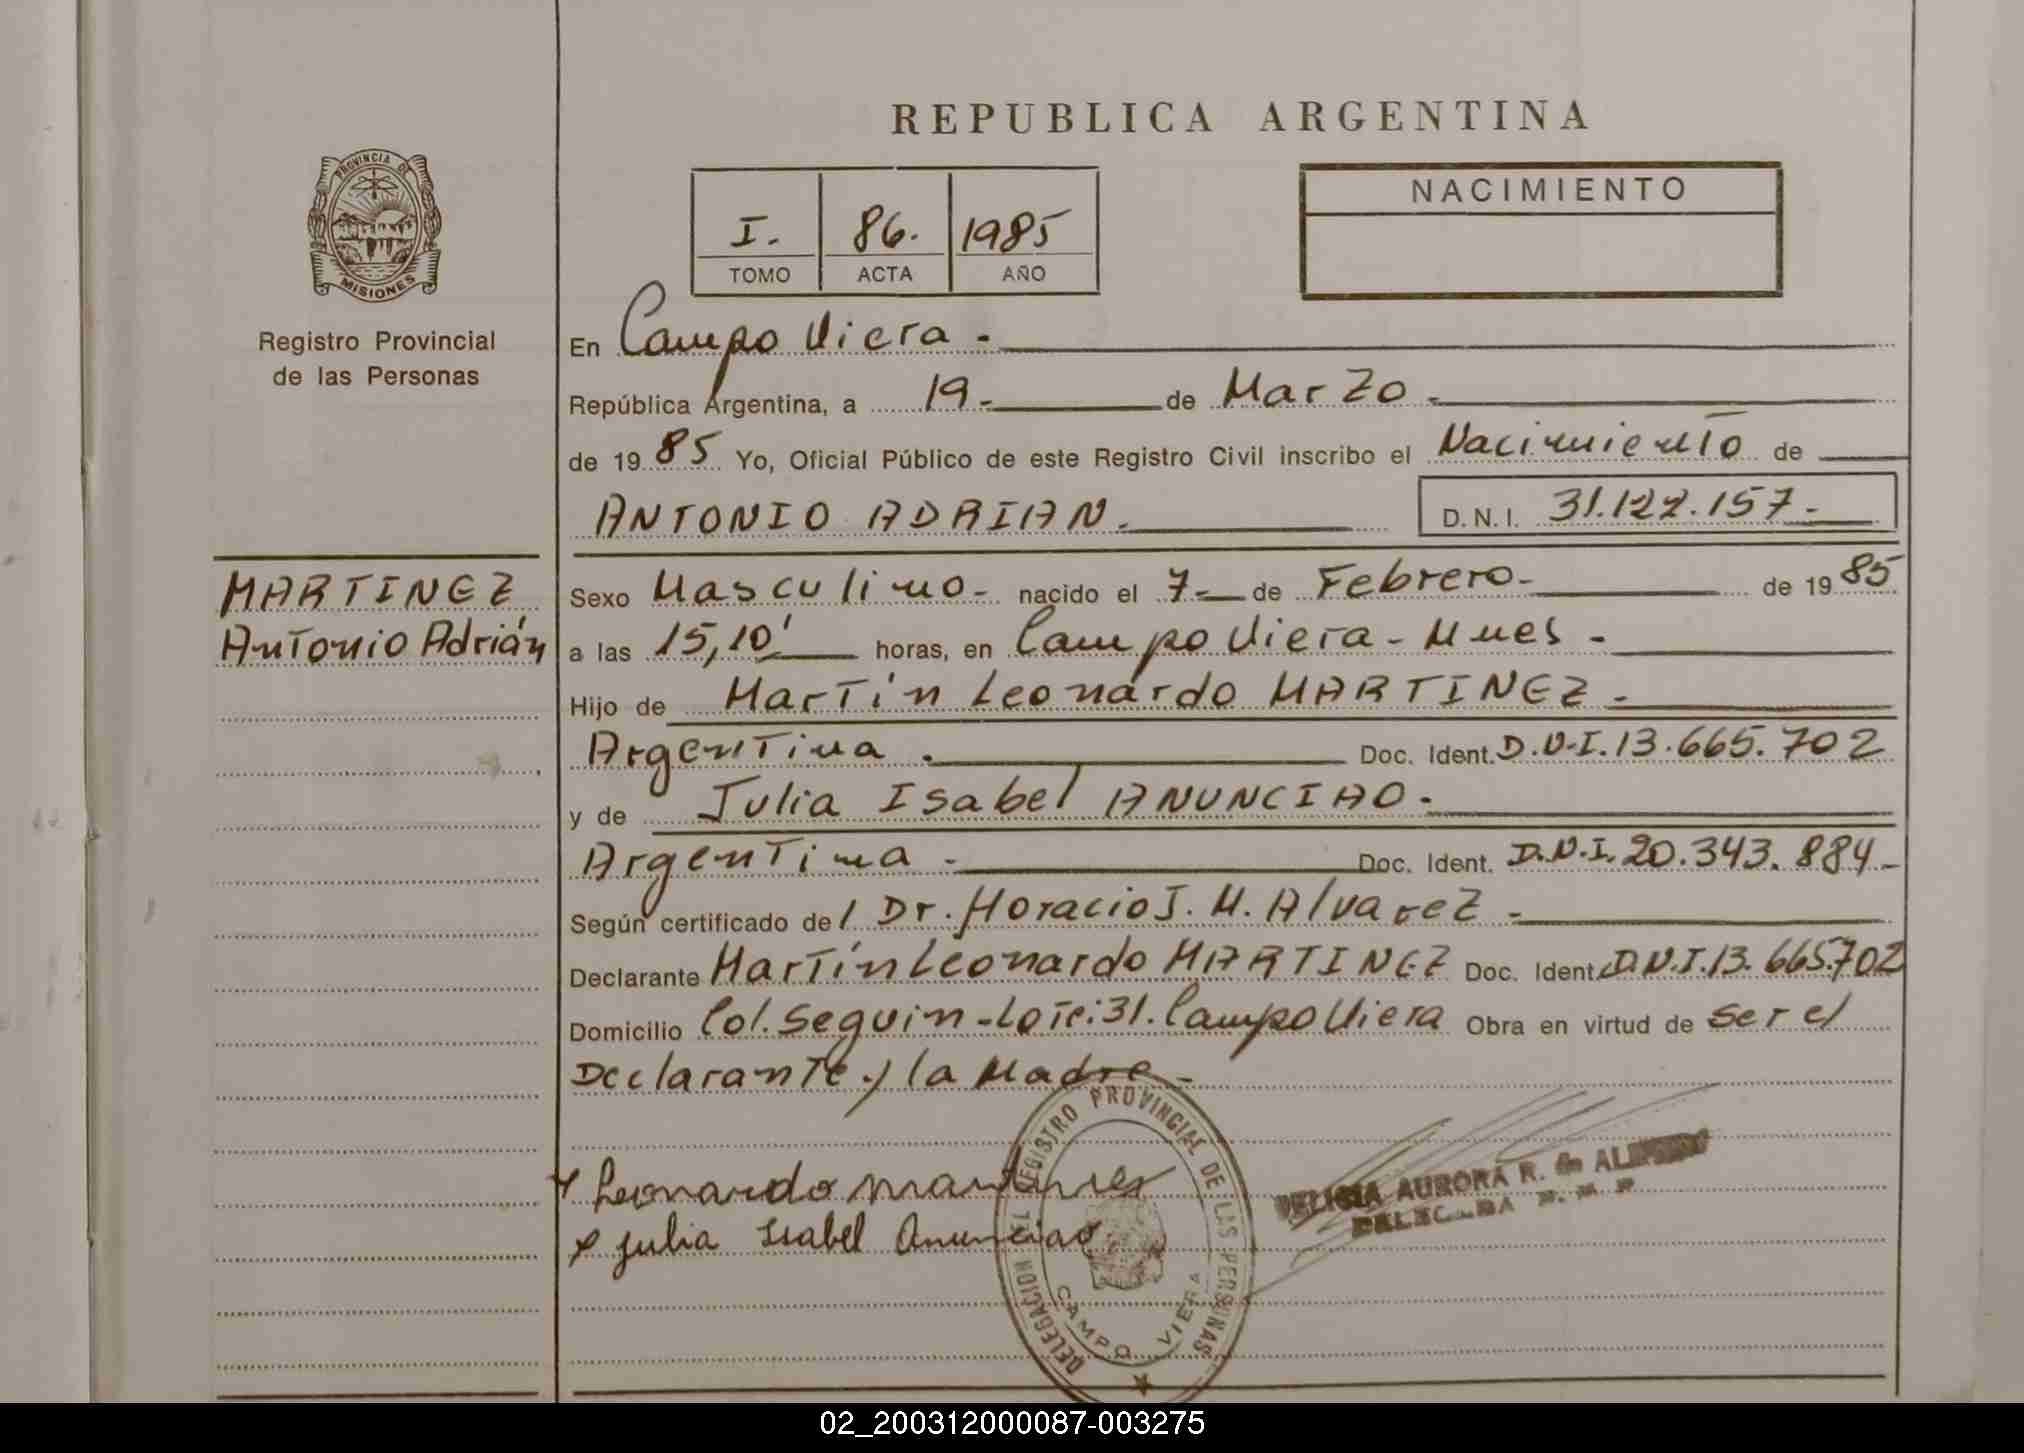 REPUBLICA ARGENTINA
PROVINCIA DE
MISIONES
Registro Provincial
de las Personas
I. 86. 1985
TOMO ACTA AÑO
NACIMIENTO
En Campo Viera -
República Argentina, a 19- de Marzo -
de 1985 Yo, Oficial Público de este Registro Civil inscribo el Nacimiento de
ANTONIO ADRIAN - D. N. I. 31.122.157.-
MARTINEZ
Antonio Adrián
Sexo Masculino - nacido el 7- de Febrero - de 1985
a las 15,10' horas, en Campo Viera - Mnes -
Hijo de Martín Leonardo MARTINEZ -
Argentina - Doc. Ident. D.N.I. 13.665.702
y de Julia Isabel ANUNCIAO -
Argentina - Doc. Ident. D.N.I. 20.343.884-
Según certificado del Dr. Horacio J. M. Alvarez -
Declarante Martín Leonardo MARTINEZ Doc. Ident. D.N.I. 13.665.702
Domicilio Col. Seguin - Lote: 31. Campo Viera Obra en virtud de ser el
Declarante y la Madre -
x Leonardo martines
x julia Isabel Anunciao
DELEGACION REGISTRO PROVINCIAL DE LAS PERSONAS
CAMPO VIERA
DELICIA AURORA R. de
DELEGADA
02_200312000087-003275